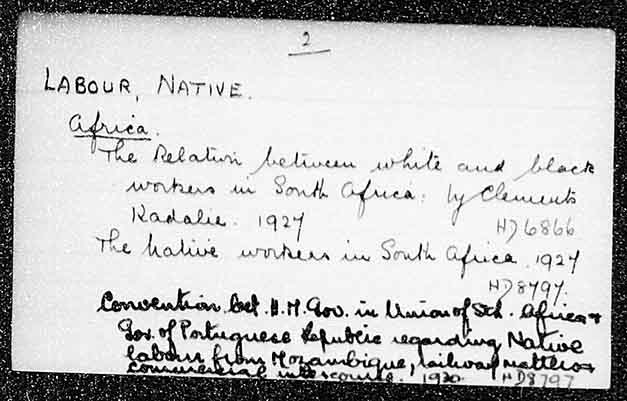 2
LABOUR, NATIVE.
Africa.
The Relation between white and black
workers in South Africa: by Clements
Kadalie. 1927 HD 6866
The Native workers in South Africa. 1927
HD8797.
Convention bet. H.M. Gov. in Union of Sth. Africa +
Gov. of Portuguese Republic regarding Native
labour from Mozambique, railway matters +
commercial intercourse. 1920. HD8797